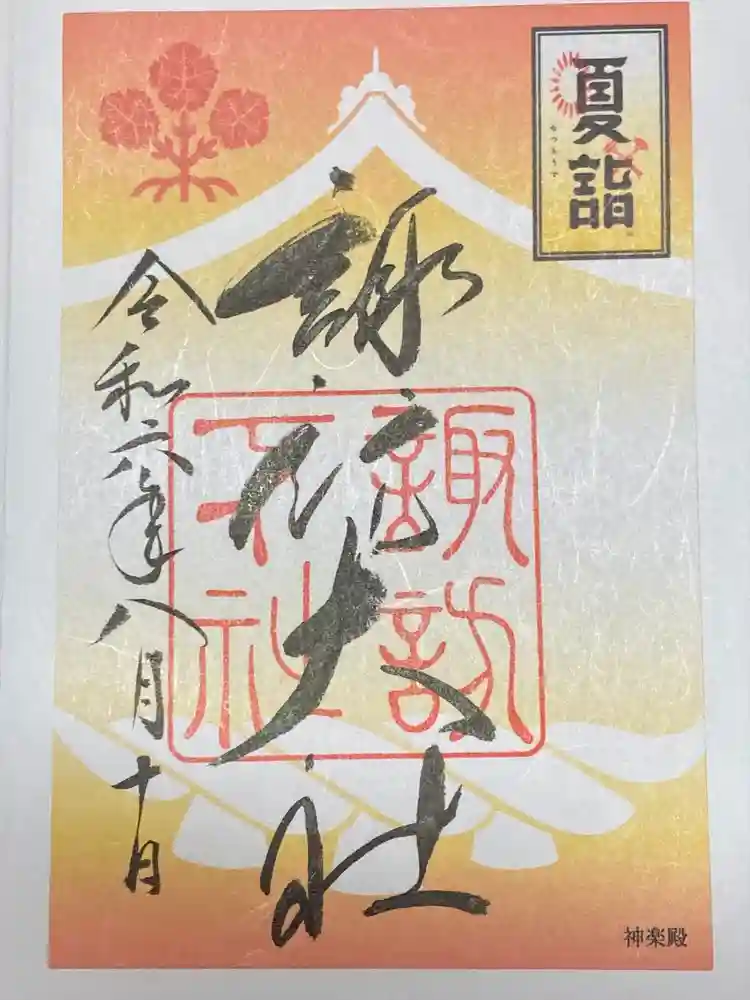 夏詣
なつもうで
諏訪大社
諏訪
大社
令和六年八月十日
神楽殿